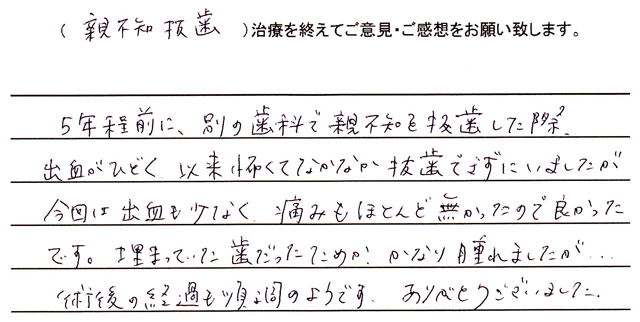 ( 親不知抜歯 )治療を終えてご意見・ご感想をお願い致します。
5年程前に、別の歯科で親不知を抜歯した際、
出血がひどく 以来怖くてなかなか 抜歯できずにいましたが
今回は出血も少なく 痛みもほとんど無かったので良かった
です。埋まっていた歯だったためか かなり腫れましたが…
術後の経過も順調のようです。ありがとうございました。